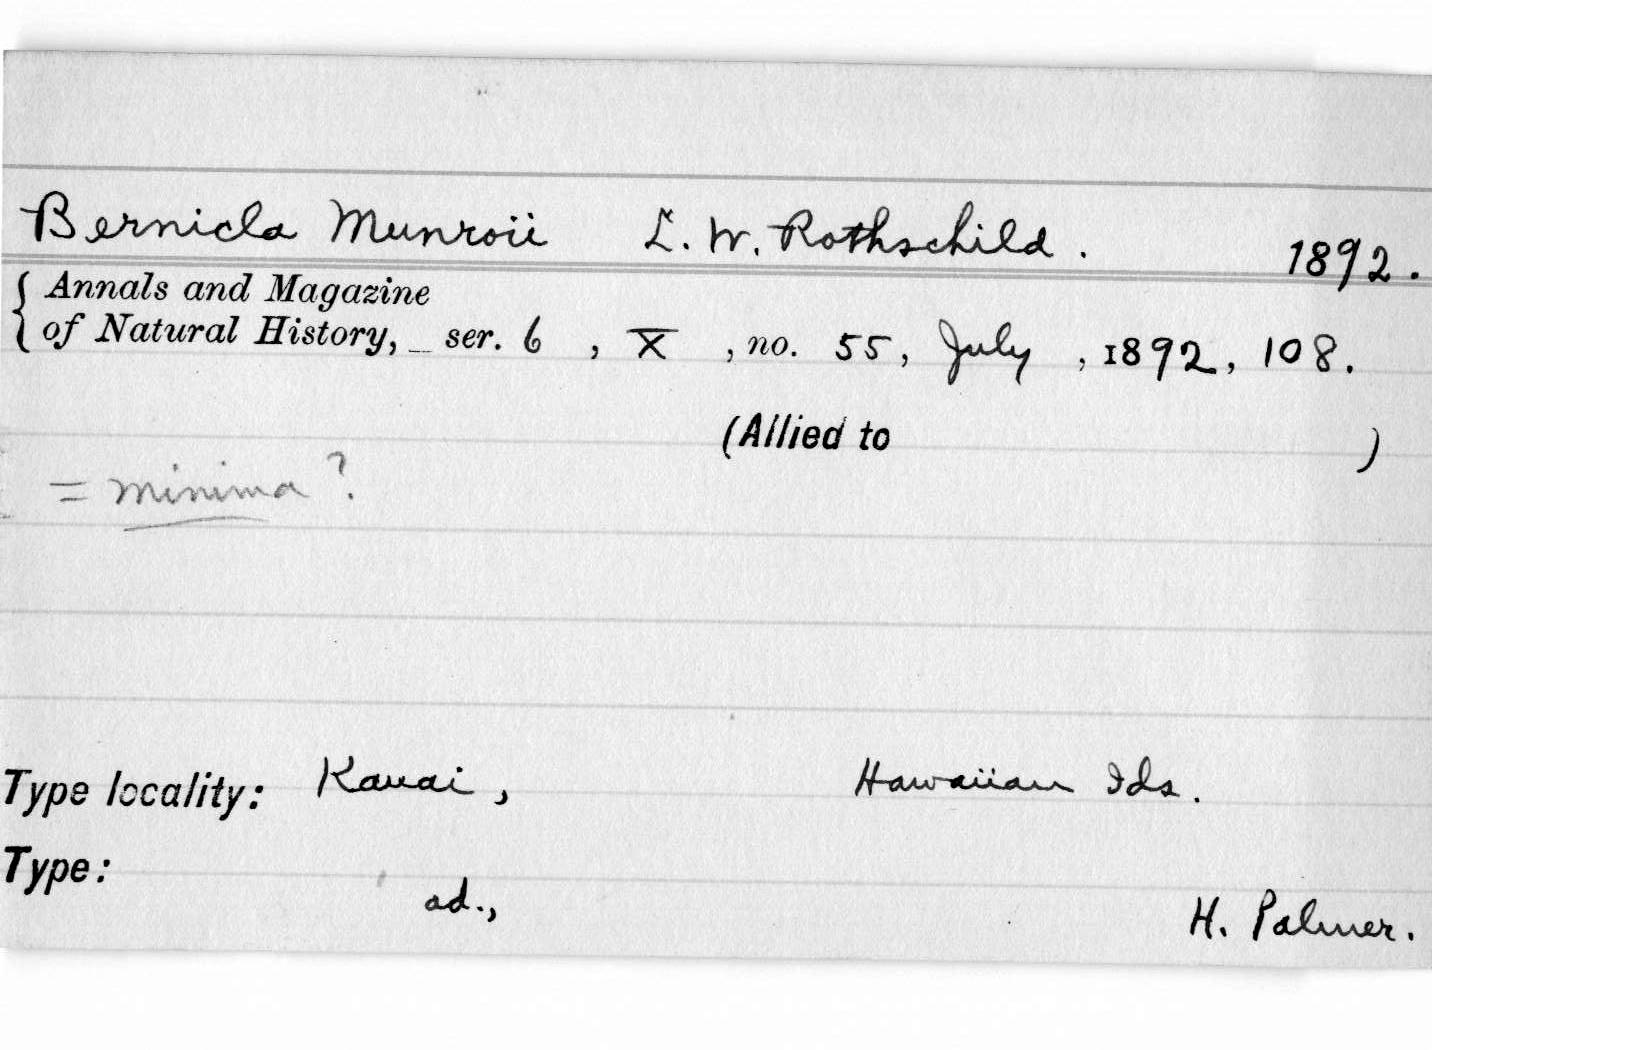 Bernicla Munroii L. W. Rothschild. 1892.
{ Annals and Magazine
of Natural History, _ ser. 6 , X , no. 55, July , 1892, 108.
(Allied to )
= minima ?
Type locality: Kauai, Hawaiian Ids.
Type:
ad., H. Palmer.